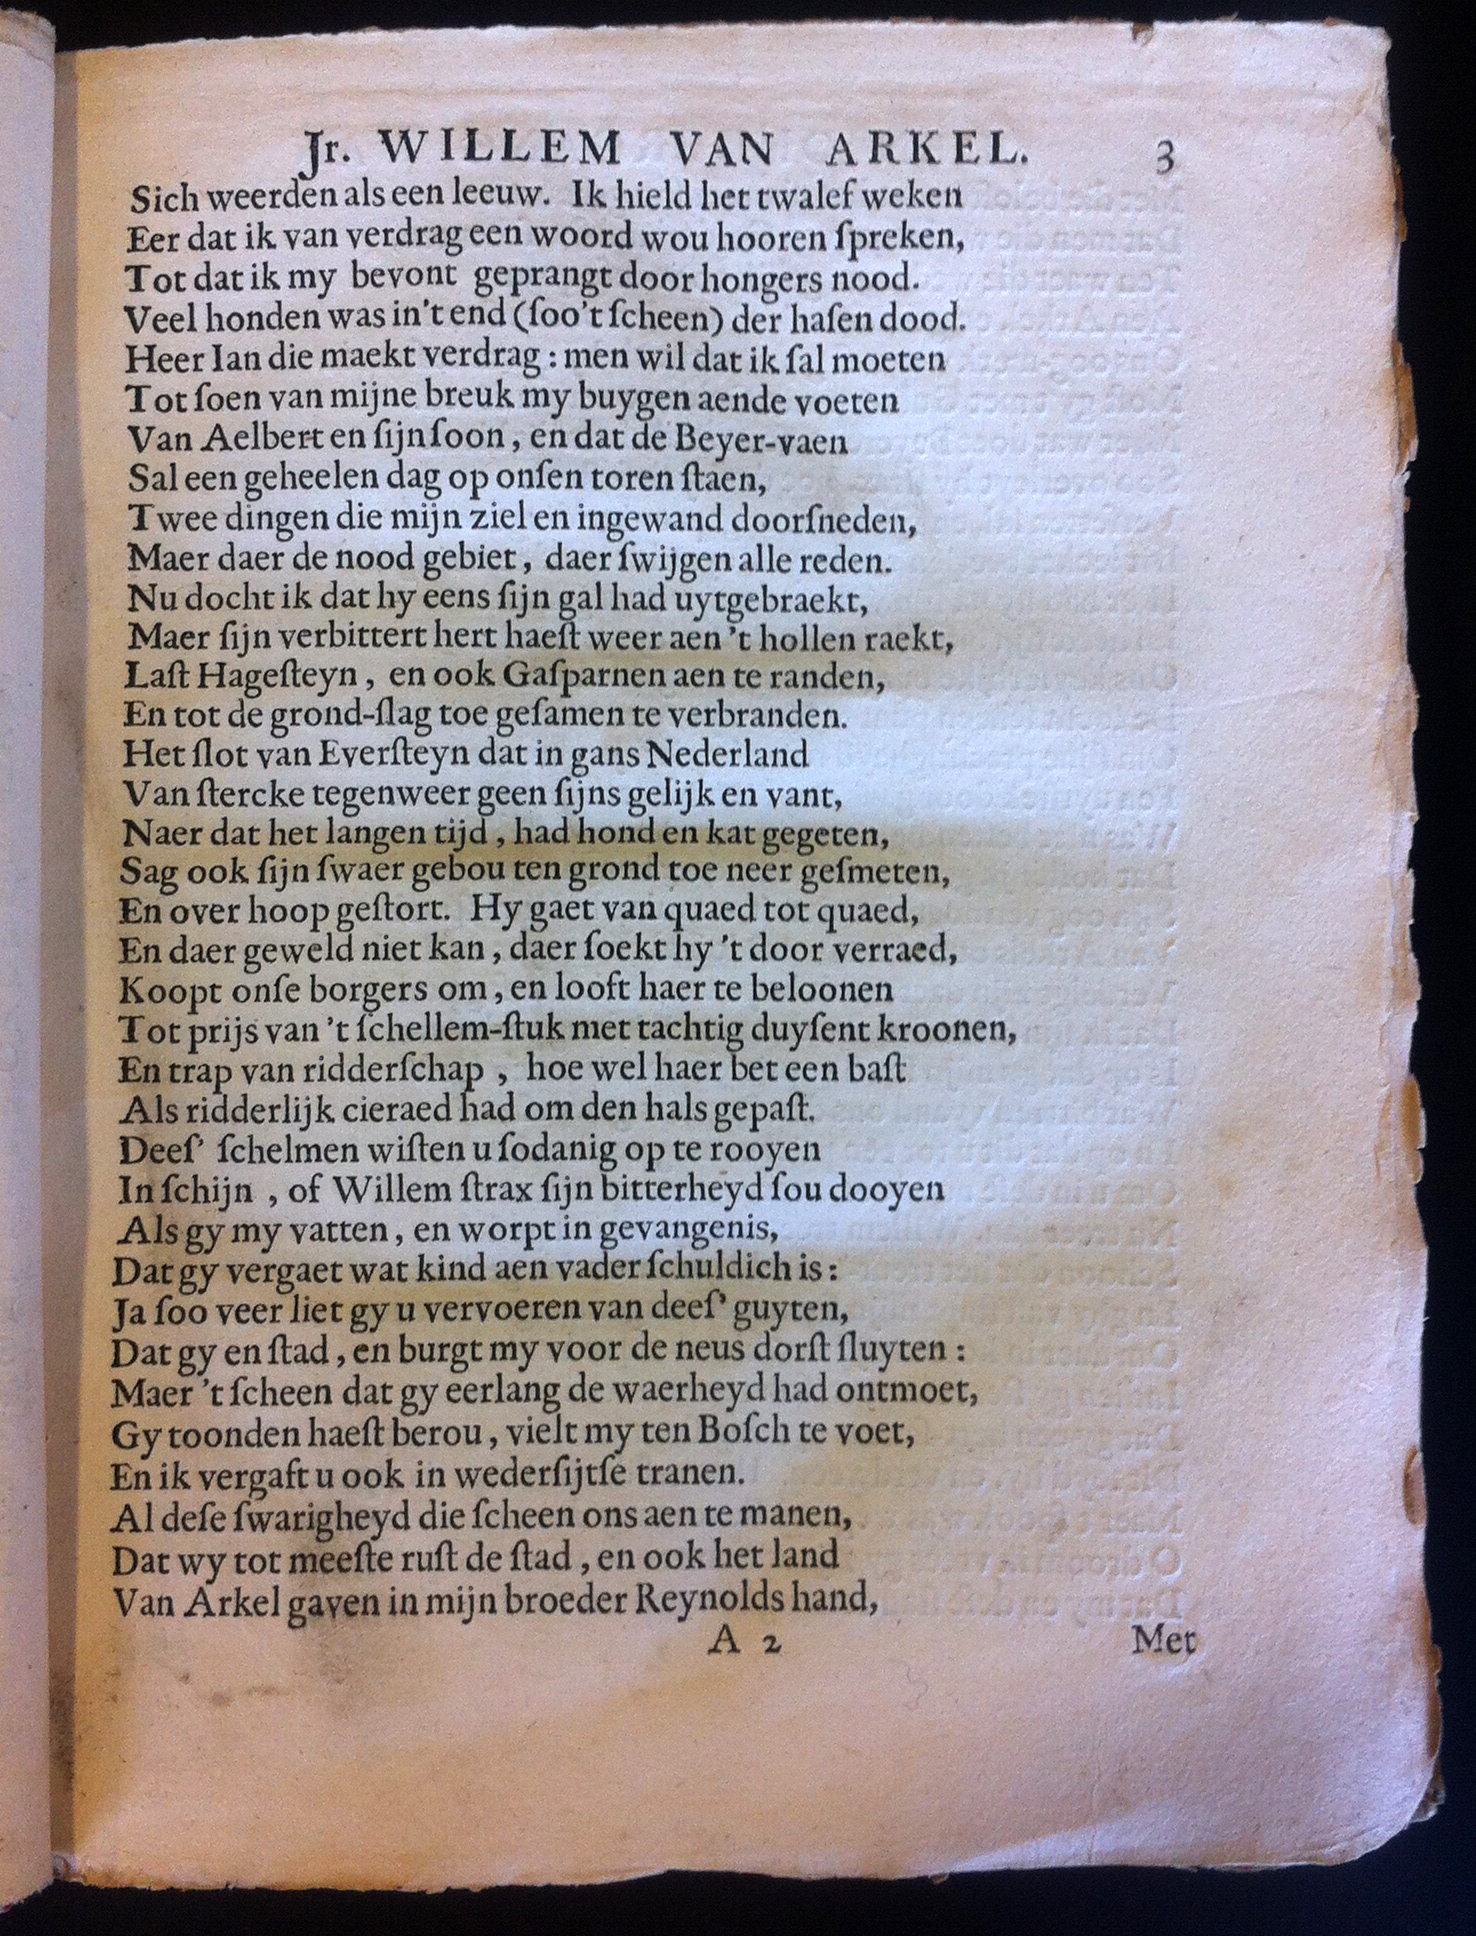 Jr. WILLEM VAN ARKEL. 3
Sich weerden als een leeuw. Ik hield het twalef weken
Eer dat ik van verdrag een woord wou hooren ſpreken,
Tot dat ik my bevont geprangt door hongers nood.
Veel honden was in't end (ſoo't ſcheen) der haſen dood.
Heer Ian die maekt verdrag : men wil dat ik ſal moeten
Tot ſoen van mijne breuk my buygen aende voeten
Van Aelbert en ſijn ſoon, en dat de Beyer-vaen
Sal een geheelen dag op onſen toren ſtaen,
Twee dingen die mijn ziel en ingewand doorſneden,
Maer daer de nood gebiet, daer ſwijgen alle reden.
Nu docht ik dat hy eens ſijn gal had uytgebraekt,
Maer ſijn verbittert hert haeſt weer aen 't hollen raekt,
Laſt Hageſteyn, en ook Gaſparnen aen te randen,
En tot de grond-ſlag toe geſamen te verbranden.
Het ſlot van Everſteyn dat in gans Nederland
Van ſtercke tegenweer geen ſijns gelijk en vant,
Naer dat het langen tijd, had hond en kat gegeten,
Sag ook ſijn ſwaer gebou ten grond toe neer geſmeten,
En over hoop geſtort. Hy gaet van quaed tot quaed,
En daer geweld niet kan, daer ſoekt hy 't door verraed,
Koopt onſe borgers om, en looft haer te beloonen
Tot prijs van 't ſchellem-ſtuk met tachtig duyſent kroonen,
En trap van ridderſchap, hoe wel haer bet een baſt
Als ridderlijk cieraed had om den hals gepaſt.
Deeſ' ſchelmen wiſten u ſodanig op te rooyen
In ſchijn, of Willem ſtrax ſijn bitterheyd ſou dooyen
Als gy my vatten, en worpt in gevangenis,
Dat gy vergaet wat kind aen vader ſchuldich is:
Ja ſoo veer liet gy u vervoeren van deeſ' guyten,
Dat gy en ſtad, en burgt my voor de neus dorſt ſluyten :
Maer 't ſcheen dat gy eerlang de waerheyd had ontmoet,
Gy toonden haeſt berou, vielt my ten Boſch te voet,
En ik vergaft u ook in wederſijtſe tranen.
Al deſe ſwarigheyd die ſcheen ons aen te manen,
Dat wy tot meeſte ruſt de ſtad, en ook het land
Van Arkel gaven in mijn broeder Reynolds hand,
A 2 Met